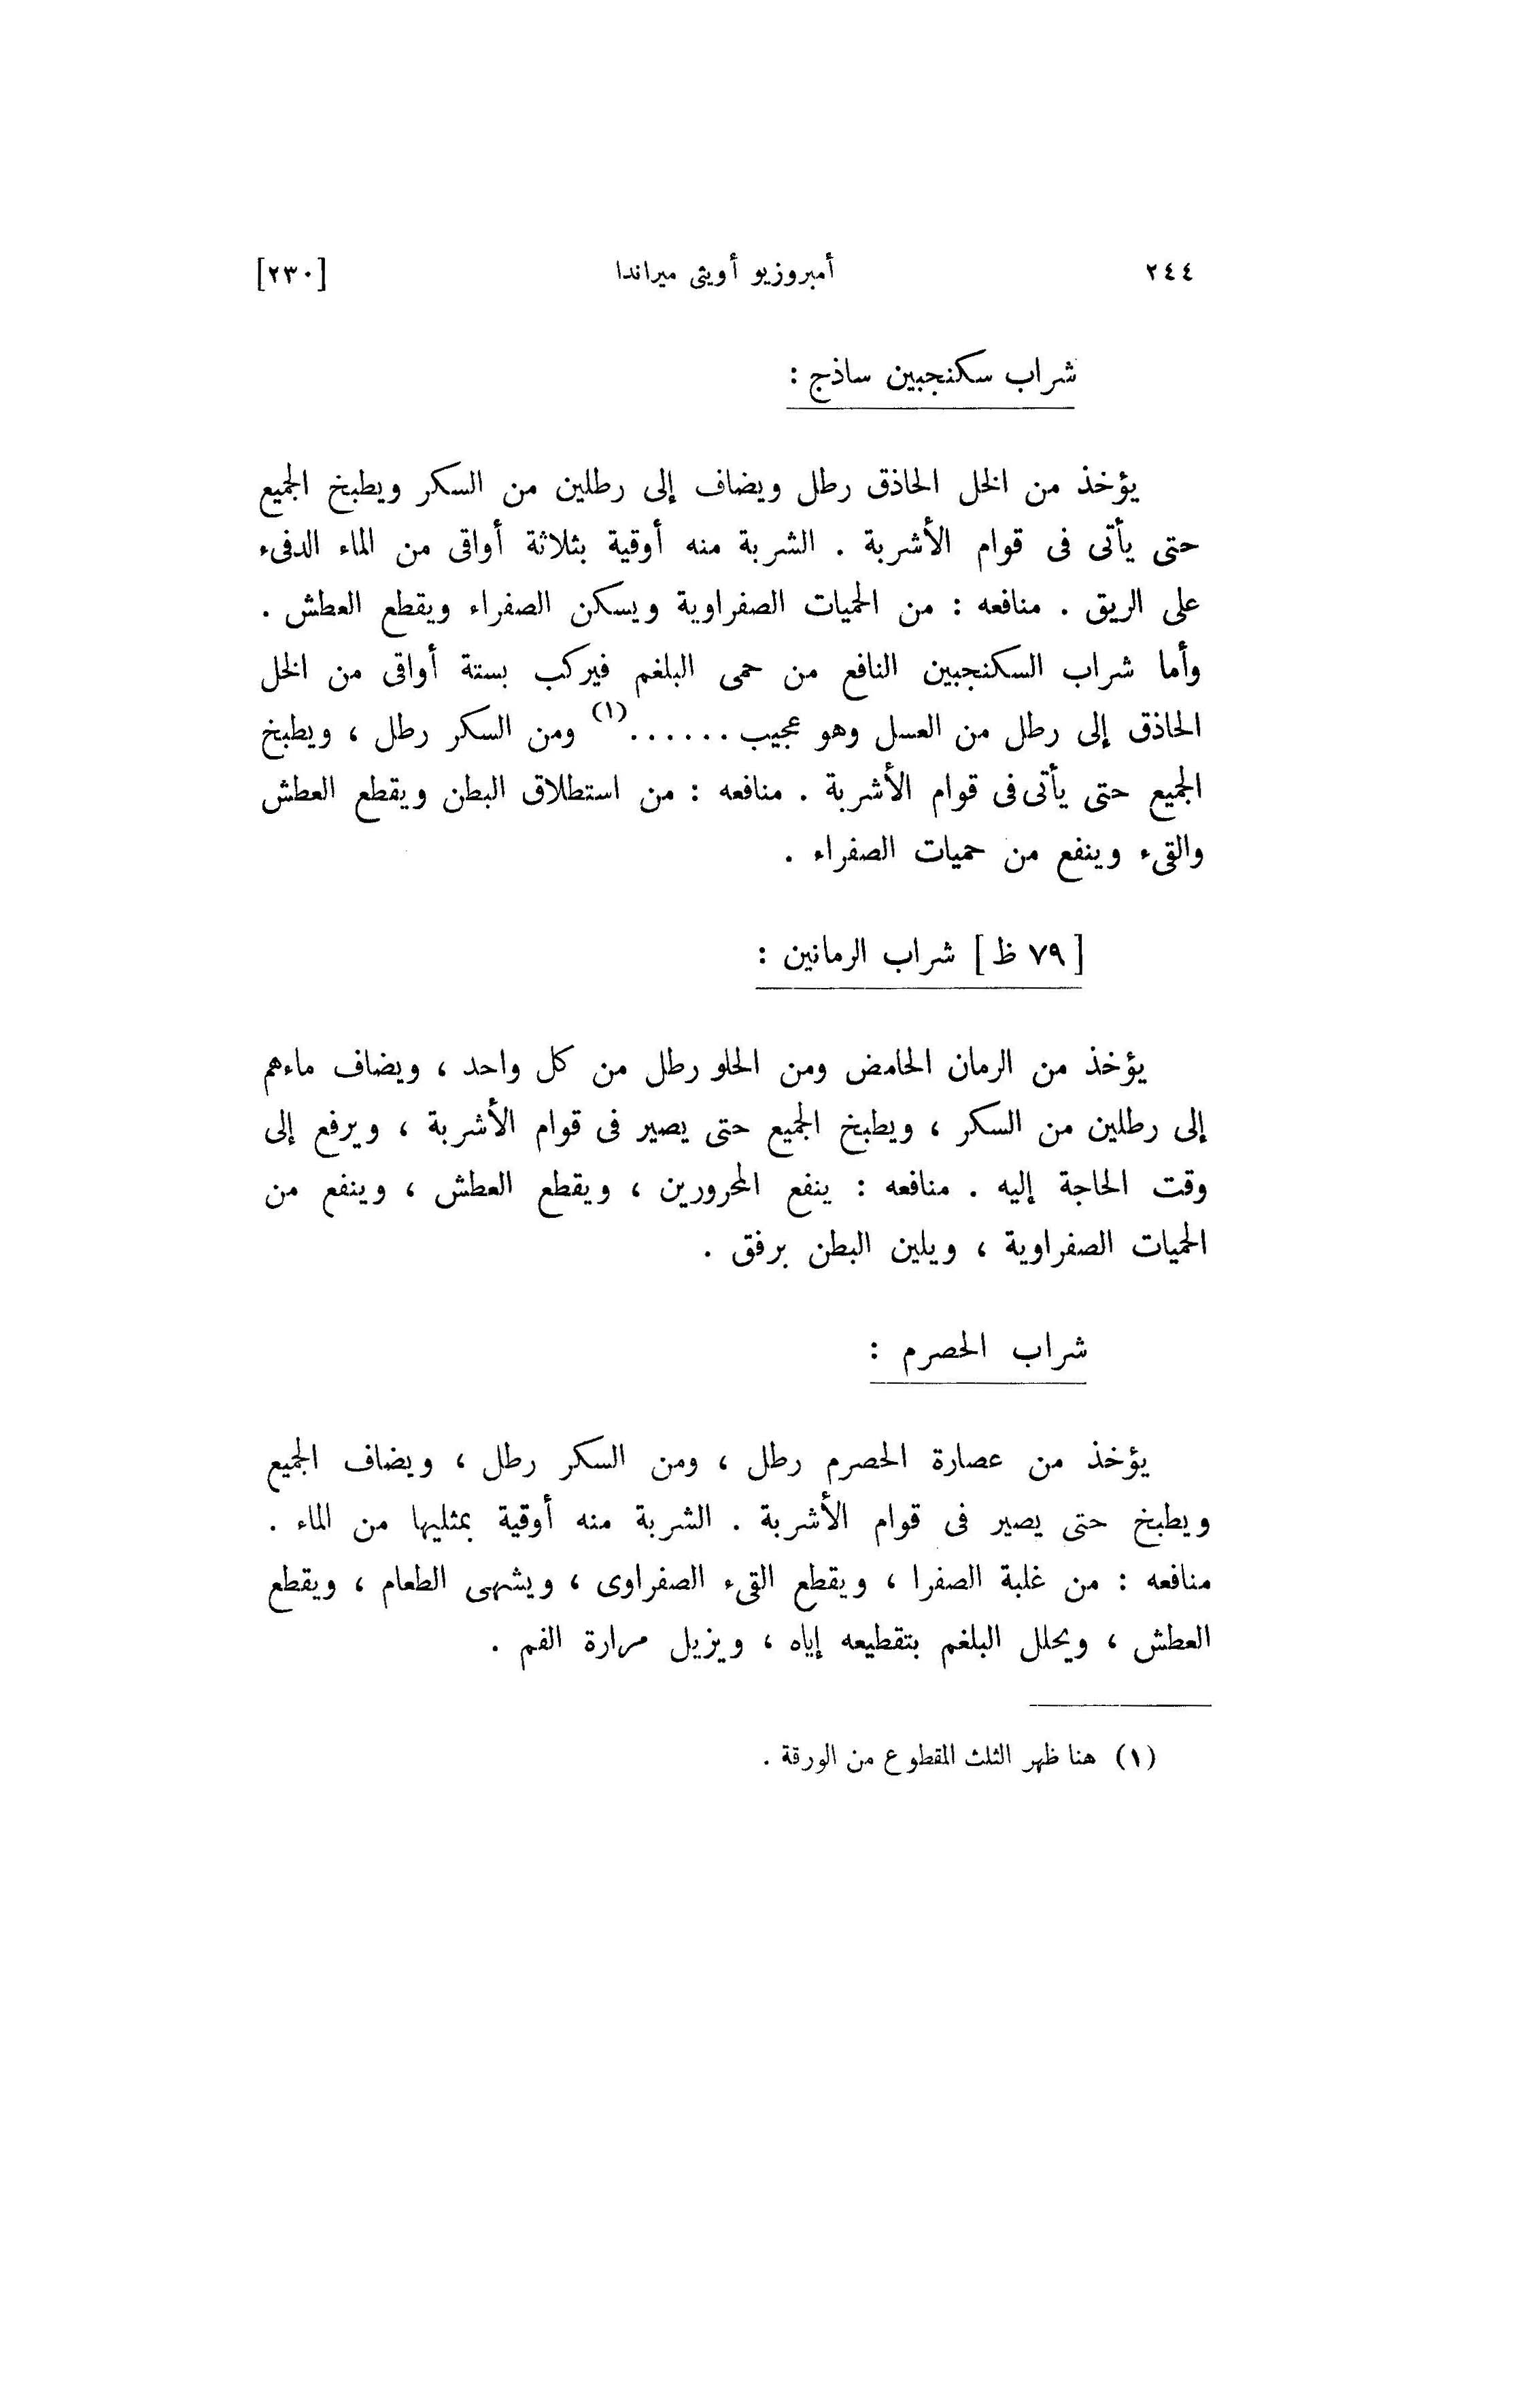 ٢٤٤ أمبروزيو أويثى ميراندا [٢٣٠]
شراب سكنجبين ساذج :
يؤخذ من الخل الحاذق رطل ويضاف إلى رطلين من السكر ويطبخ الجميع
حتى يأتى فى قوام الأشربة . الشربة منه أوقية بثلاثة أواقى من الماء الدفىء
على الريق . منافعه : من الحميات الصفراوية ويسكن الصفراء ويقطع العطش .
وأما شراب السكنجبين النافع من حمى البلغم فيركب بستة أواقى من الخل
الحاذق إلى رطل من العسل وهو عجيب ......(١) ومن السكر رطل ، ويطبخ
الجميع حتى يأتى فى قوام الأشربة . منافعه : من استطلاق البطن ويقطع العطش
والقىء وينفع من حميات الصفراء .
[ ٧٩ ظ ] شراب الرمانين :
يؤخذ من الرمان الحامض ومن الحلو رطل من كل واحد ، ويضاف ماءهم
إلى رطلين من السكر ، ويطبخ الجميع حتى يصير فى قوام الأشربة ، ويرفع إلى
وقت الحاجة إليه . منافعه : ينفع المحرورين ، ويقطع العطش ، وينفع من
الحميات الصفراوية ، ويلين البطن برفق .
شراب الحصرم :
يؤخذ من عصارة الحصرم رطل ، ومن السكر رطل ، ويضاف الجميع
ويطبخ حتى يصير فى قوام الأشربة . الشربة منه أوقية بمثليها من الماء .
منافعه : من غلبة الصفرا ، ويقطع القىء الصفراوى ، ويشهى الطعام ، ويقطع
العطش ، ويحلل البلغم بتقطيعه إياه ، ويزيل مرارة الفم .
(١) هنا ظهر الثلث المقطوع من الورقة .